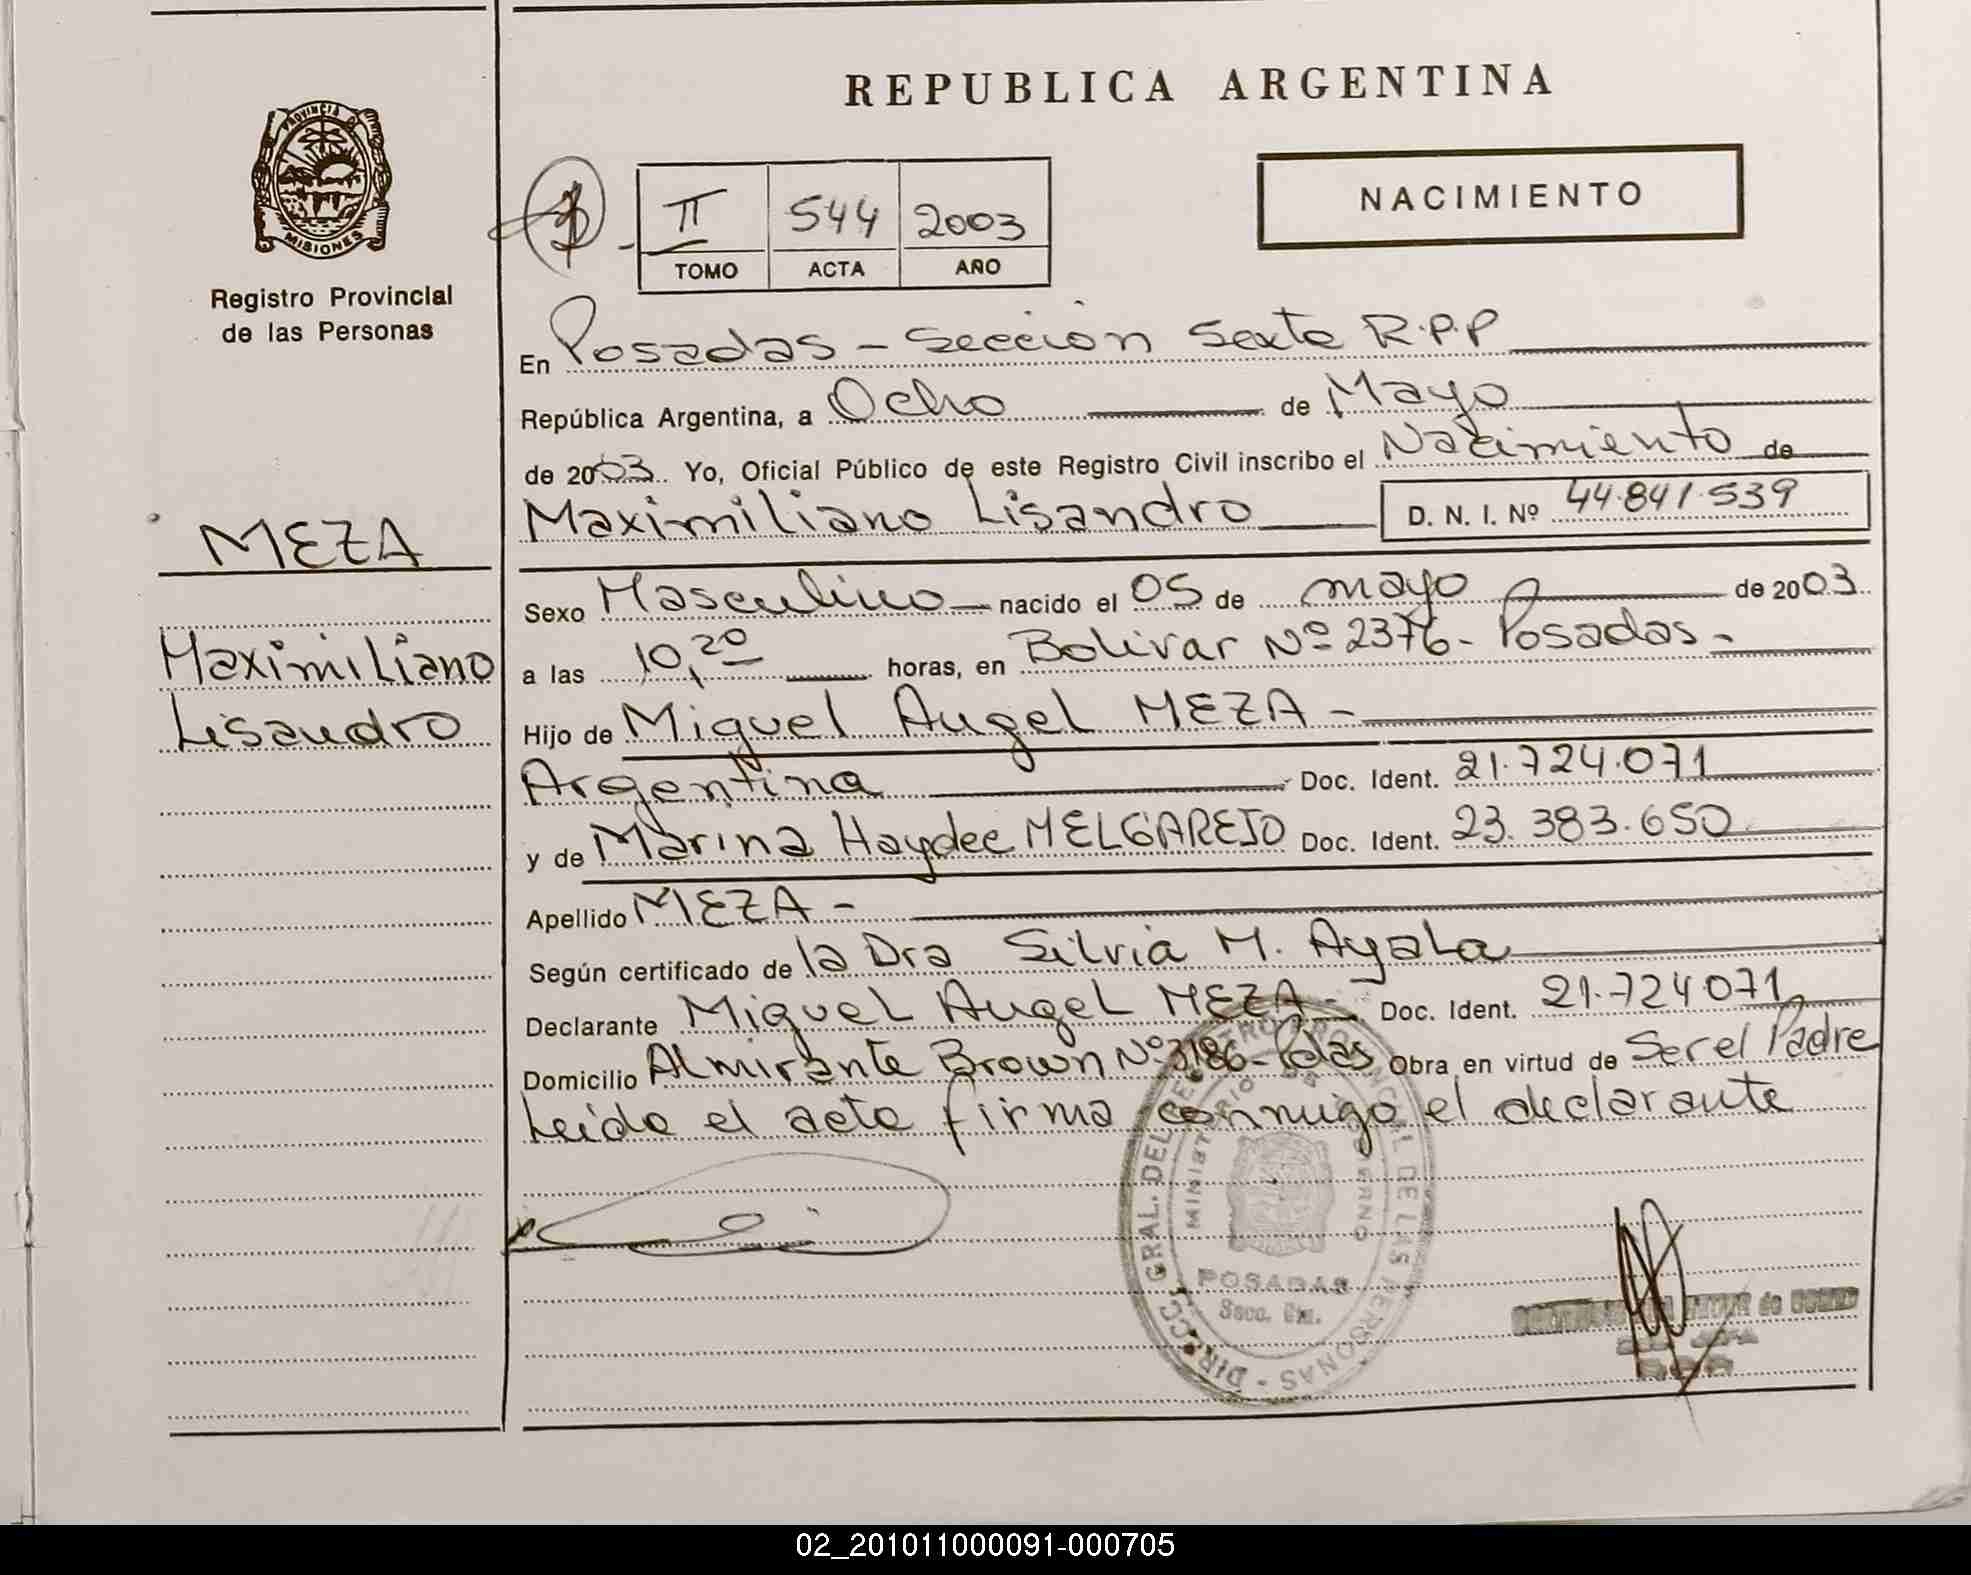 REPUBLICA ARGENTINA
PROVINCIA DE
MISIONES
Registro Provincial
de las Personas
NACIMIENTO
II 544 2003
TOMO ACTA AÑO
En Posadas - Sección Sexta R.P.P
República Argentina, a Ocho de Mayo
de 2003. Yo, Oficial Público de este Registro Civil inscribo el Nacimiento de
Maximiliano Lisandro D. N. I. Nº 44.841.539
MEZA
Maximiliano
Lisandro
Sexo Masculino nacido el 05 de mayo de 2003.
a las 10,20 horas, en Bolivar Nº 2376 - Posadas -
Hijo de Miguel Angel MEZA -
Argentina Doc. Ident. 21.724.071
y de Marina Haydee MELGAREJO Doc. Ident. 23.383.650
Apellido MEZA -
Según certificado de la Dra Silvia M. Ayala
Declarante Miguel Angel MEZA - Doc. Ident. 21.724071
Domicilio Almirante Brown Nº 3186 - Pdas Obra en virtud de Ser el Padre
Leída el acta firma conmigo el declarante
DIRECC. GRAL. DEL REGISTRO PROVINCIAL DE LAS PERSONAS -
MINISTERIO DE GOBIERNO
POSADAS
02_201011000091-000705